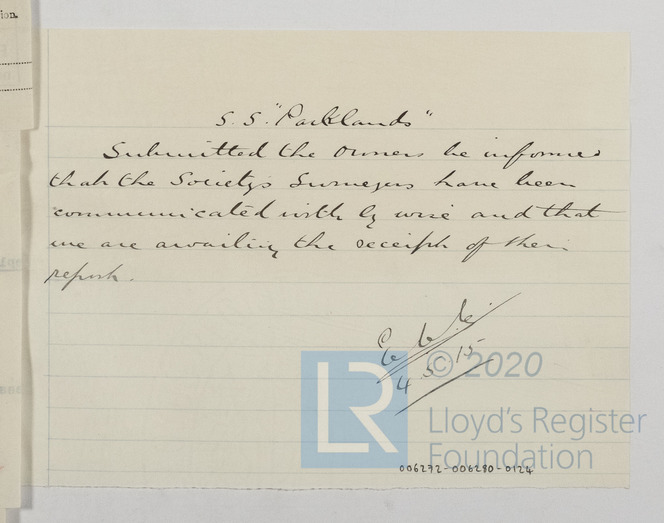 ion.
S.S. "Parklands"
Submitted the owners be informed
that the Society's Surveyors have been
communicated with by wire and that
we are awaiting the receipt of their
report.
4 5 15
© 2020
LR
Lloyd's Register
Foundation
006272-006280-0124